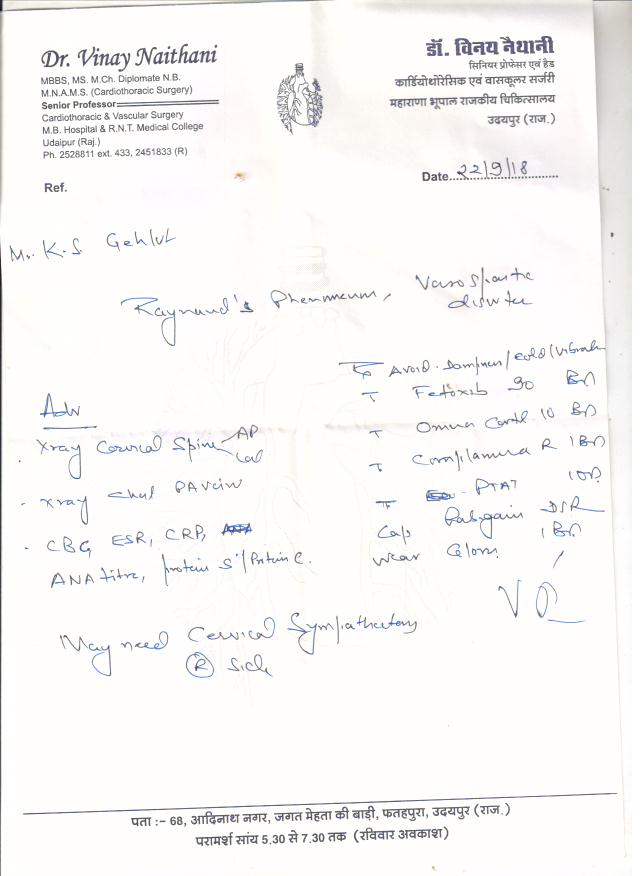 Dr. Vinay Naithani
MBBS, MS. M.Ch. Diplomate N.B.
M.N.A.M.S. (Cardiothoracic Surgery)
Senior Professor
Cardiothoracic & Vascular Surgery
M.B. Hospital & R.N.T. Medical College
Udaipur (Raj.)
Ph. 2528811 ext. 433, 2451833 (R)
डॉ. विनय नैथानी
सिनियर प्रोफेसर एवं हैड
कार्डियोथोरेसिक एवं वासकूलर सर्जरी
महाराणा भूपाल राजकीय चिकित्सालय
उदयपुर (राज.)
Ref.
Date 22/9/18
Mr. K.S. Gehlot
Raynaud's Phenomenon, Vasospastic
disorder
Adv
Xray Cervical Spine AP
Lat
Xray Chest PA view
CBC, ESR, CRP,
ANA titre, protein S / Protein C.
Avoid Dampness / Cold / Vibration
T 90 BD
T Omega 10 BD
T Complamina R 1 BD
T
Cap DSR
Wear Gloves 1 BD
May need Cervical Sympathectomy
R Side
पता :– 68, आदिनाथ नगर, जगत मेहता की बाड़ी, फतहपुरा, उदयपुर (राज.)
परामर्श सांय 5.30 से 7.30 तक (रविवार अवकाश)